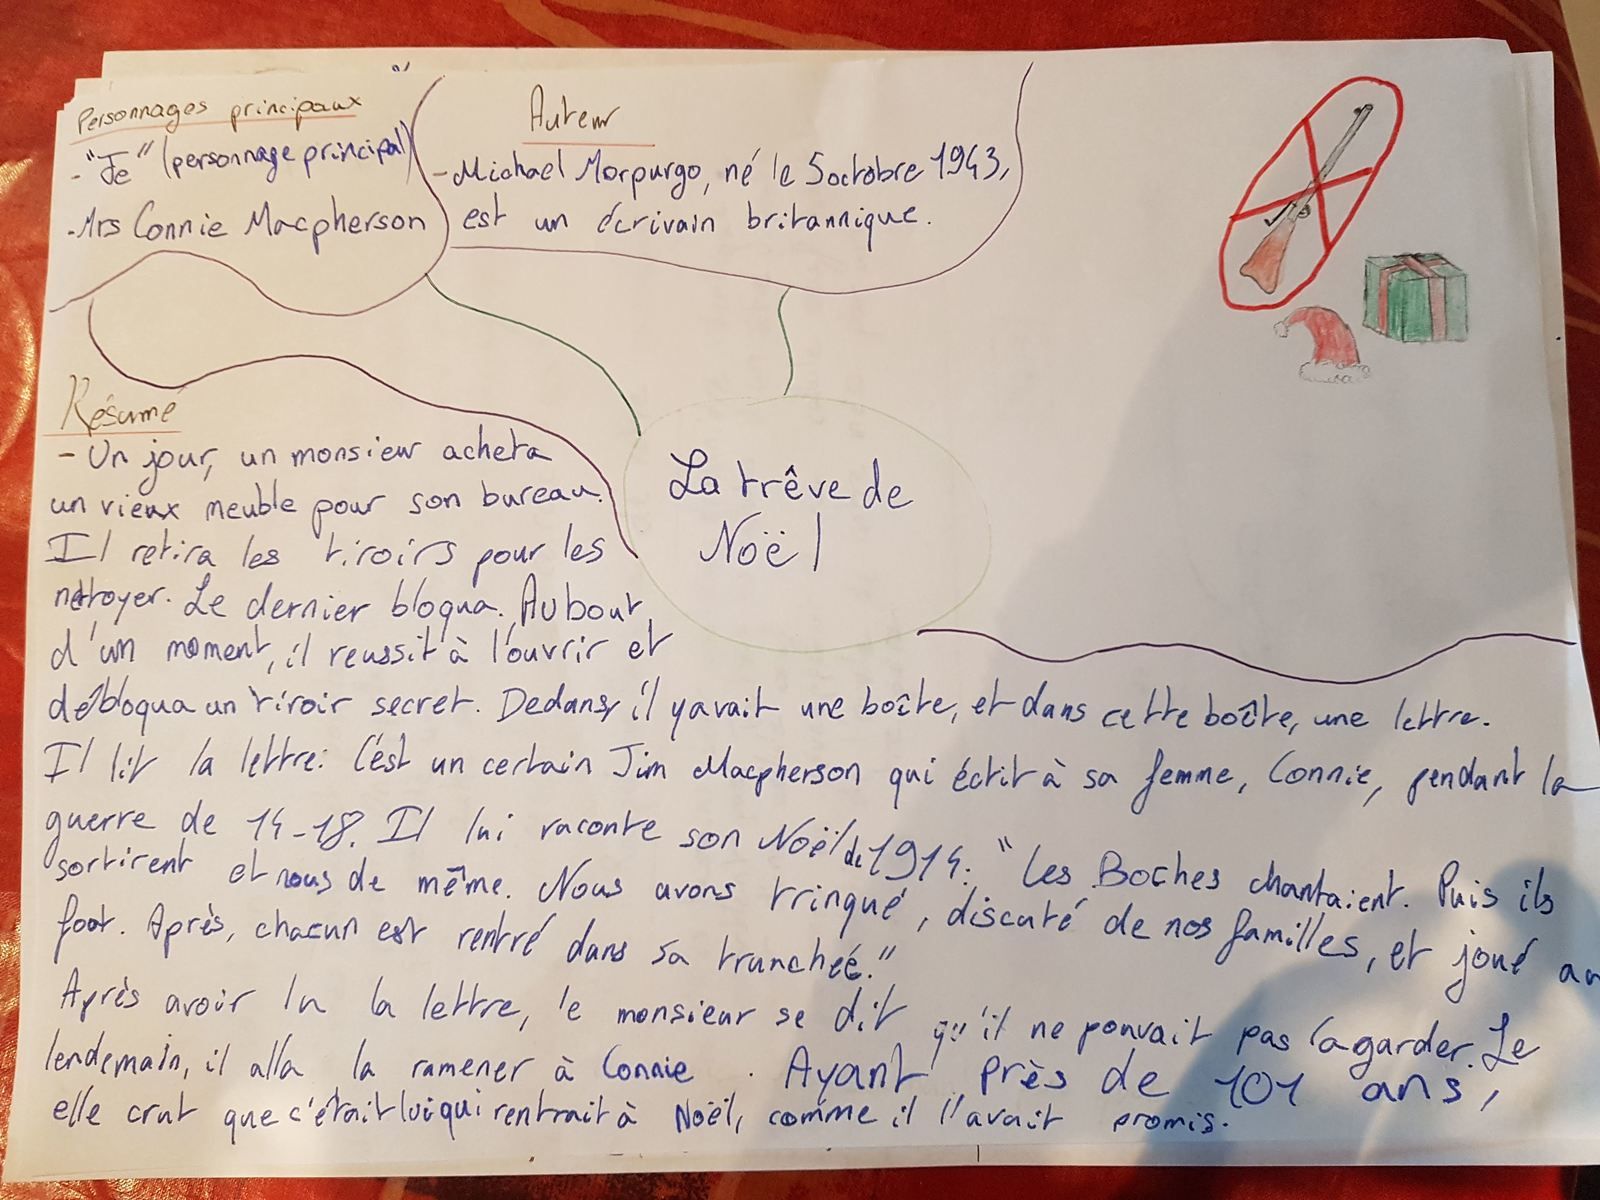 Personnages principaux
- "Je" (personnage principal)
- Mrs Connie Macpherson
Auteur
- Michael Morpurgo, né le 5 octobre 1943,
est un écrivain britannique.
La trêve de
Noël
Résumé
- Un jour, un monsieur acheta
un vieux meuble pour son bureau.
Il retira les tiroirs pour les
nettoyer. Le dernier bloqua. Au bout
d'un moment, il reussit à l'ouvrir et
débloqua un tiroir secret. Dedans, il y avait une boîte, et dans cette boîte, une lettre.
Il lit la lettre: C'est un certain Jim Macpherson qui écrit à sa femme, Connie, pendant la
guerre de 14-18. Il lui raconte son Noël de 1914: "Les Boches chantaient. Puis ils
sortirent et nous de même. Nous avons trinqué, discuté de nos familles, et joué au
foot. Après, chacun est rentré dans sa trancheé."
Après avoir lu la lettre, le monsieur se dit qu'il ne pouvait pas la garder. Le
lendemain, il alla la ramener à Connie. Ayant près de 101 ans,
elle crut que c'était lui qui rentrait à Noël, comme il l'avait promis.